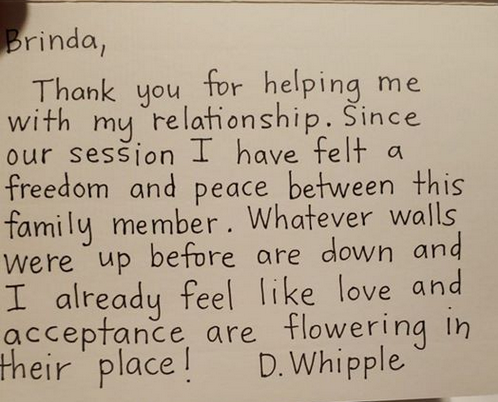 Brinda,
Thank you for helping me
with my relationship. Since
our session I have felt a
freedom and peace between this
family member. Whatever walls
were up before are down and
I already feel like love and
acceptance are flowering in
their place! D. Whipple